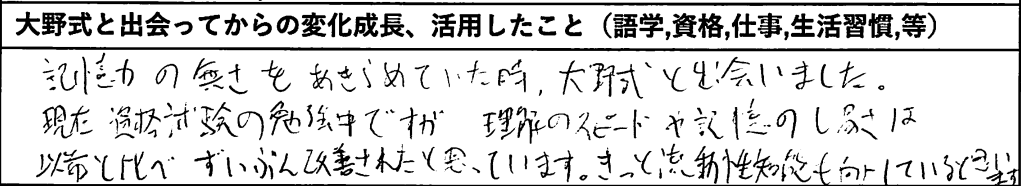 大野式と出会ってからの変化成長、活用したこと（語学,資格,仕事,生活習慣,等）
記憶力の無さをあきらめていた時、大野式と出会いました。
現在 資格試験の勉強中ですが 理解のスピードや記憶のし易さは
以前と比べ ずいぶん改善されたと思っています。きっと流動性知能も向上していると思います